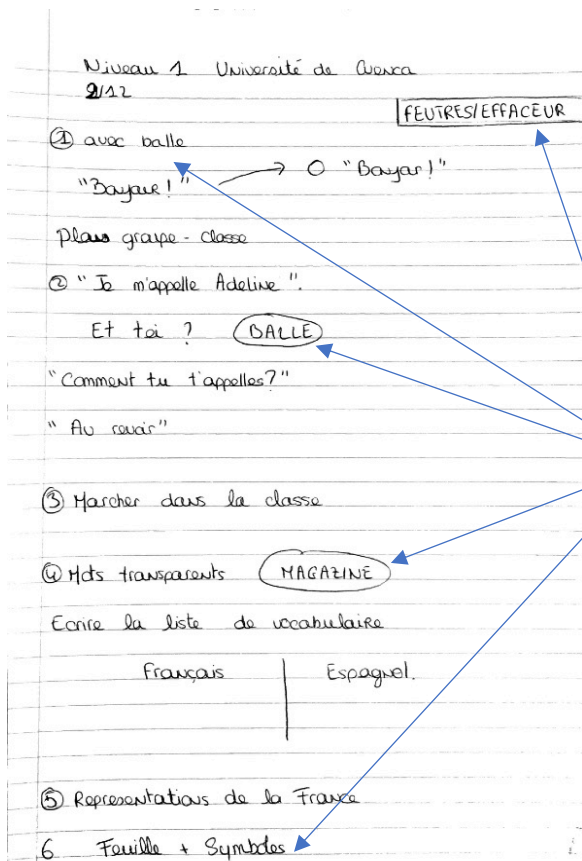 Niveau 1 Université de Cuenca
2/12
FEUTRES/EFFACEUR
① avec balle
"Bonjour!" → O "Bonjour!"
Plan groupe-classe
② "Je m'appelle Adeline".
Et toi ? BALLE
"Comment tu t'appelles?"
"Au revoir"
③ Marcher dans la classe
④ Mots transparents MAGAZINE
Ecrire la liste de vocabulaire
Français Espagnol.
⑤ Représentations de la France
6 Feuille + Symboles